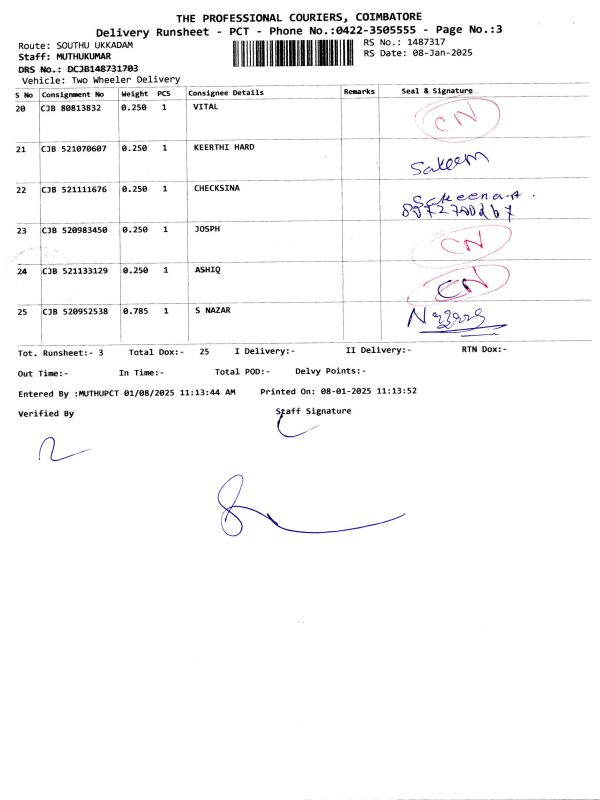 THE PROFESSIONAL COURIERS, COIMBATORE
Delivery Runsheet - PCT - Phone No.:0422-3505555 - Page No.:3
Route: SOUTHU UKKADAM RS No.: 1487317
Staff: MUTHUKUMAR RS Date: 08-Jan-2025
DRS No.: DCJB148731703
Vehicle: Two Wheeler Delivery
S No Consignment No Weight PCS Consignee Details Remarks Seal & Signature
20 CJB 80813832 0.250 1 VITAL CN
21 CJB 521070607 0.250 1 KEERTHI HARD Saleem
22 CJB 521111676 0.250 1 CHECKSINA
23 CJB 520983450 0.250 1 JOSPH CN
24 CJB 521133129 0.250 1 ASHIQ CN
25 CJB 520952538 0.785 1 S NAZAR
Tot. Runsheet:- 3 Total Dox:- 25 I Delivery:- II Delivery:- RTN Dox:-
Out Time:- In Time:- Total POD:- Delvy Points:-
Entered By :MUTHUPCT 01/08/2025 11:13:44 AM Printed On: 08-01-2025 11:13:52
Verified By Staff Signature